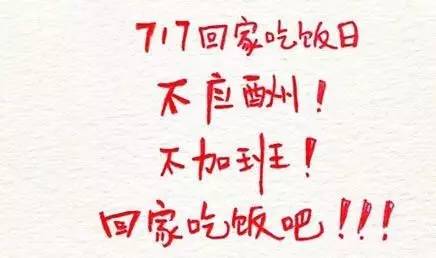 717回家吃饭日
不应酬！
不加班！
回家吃饭吧！！！